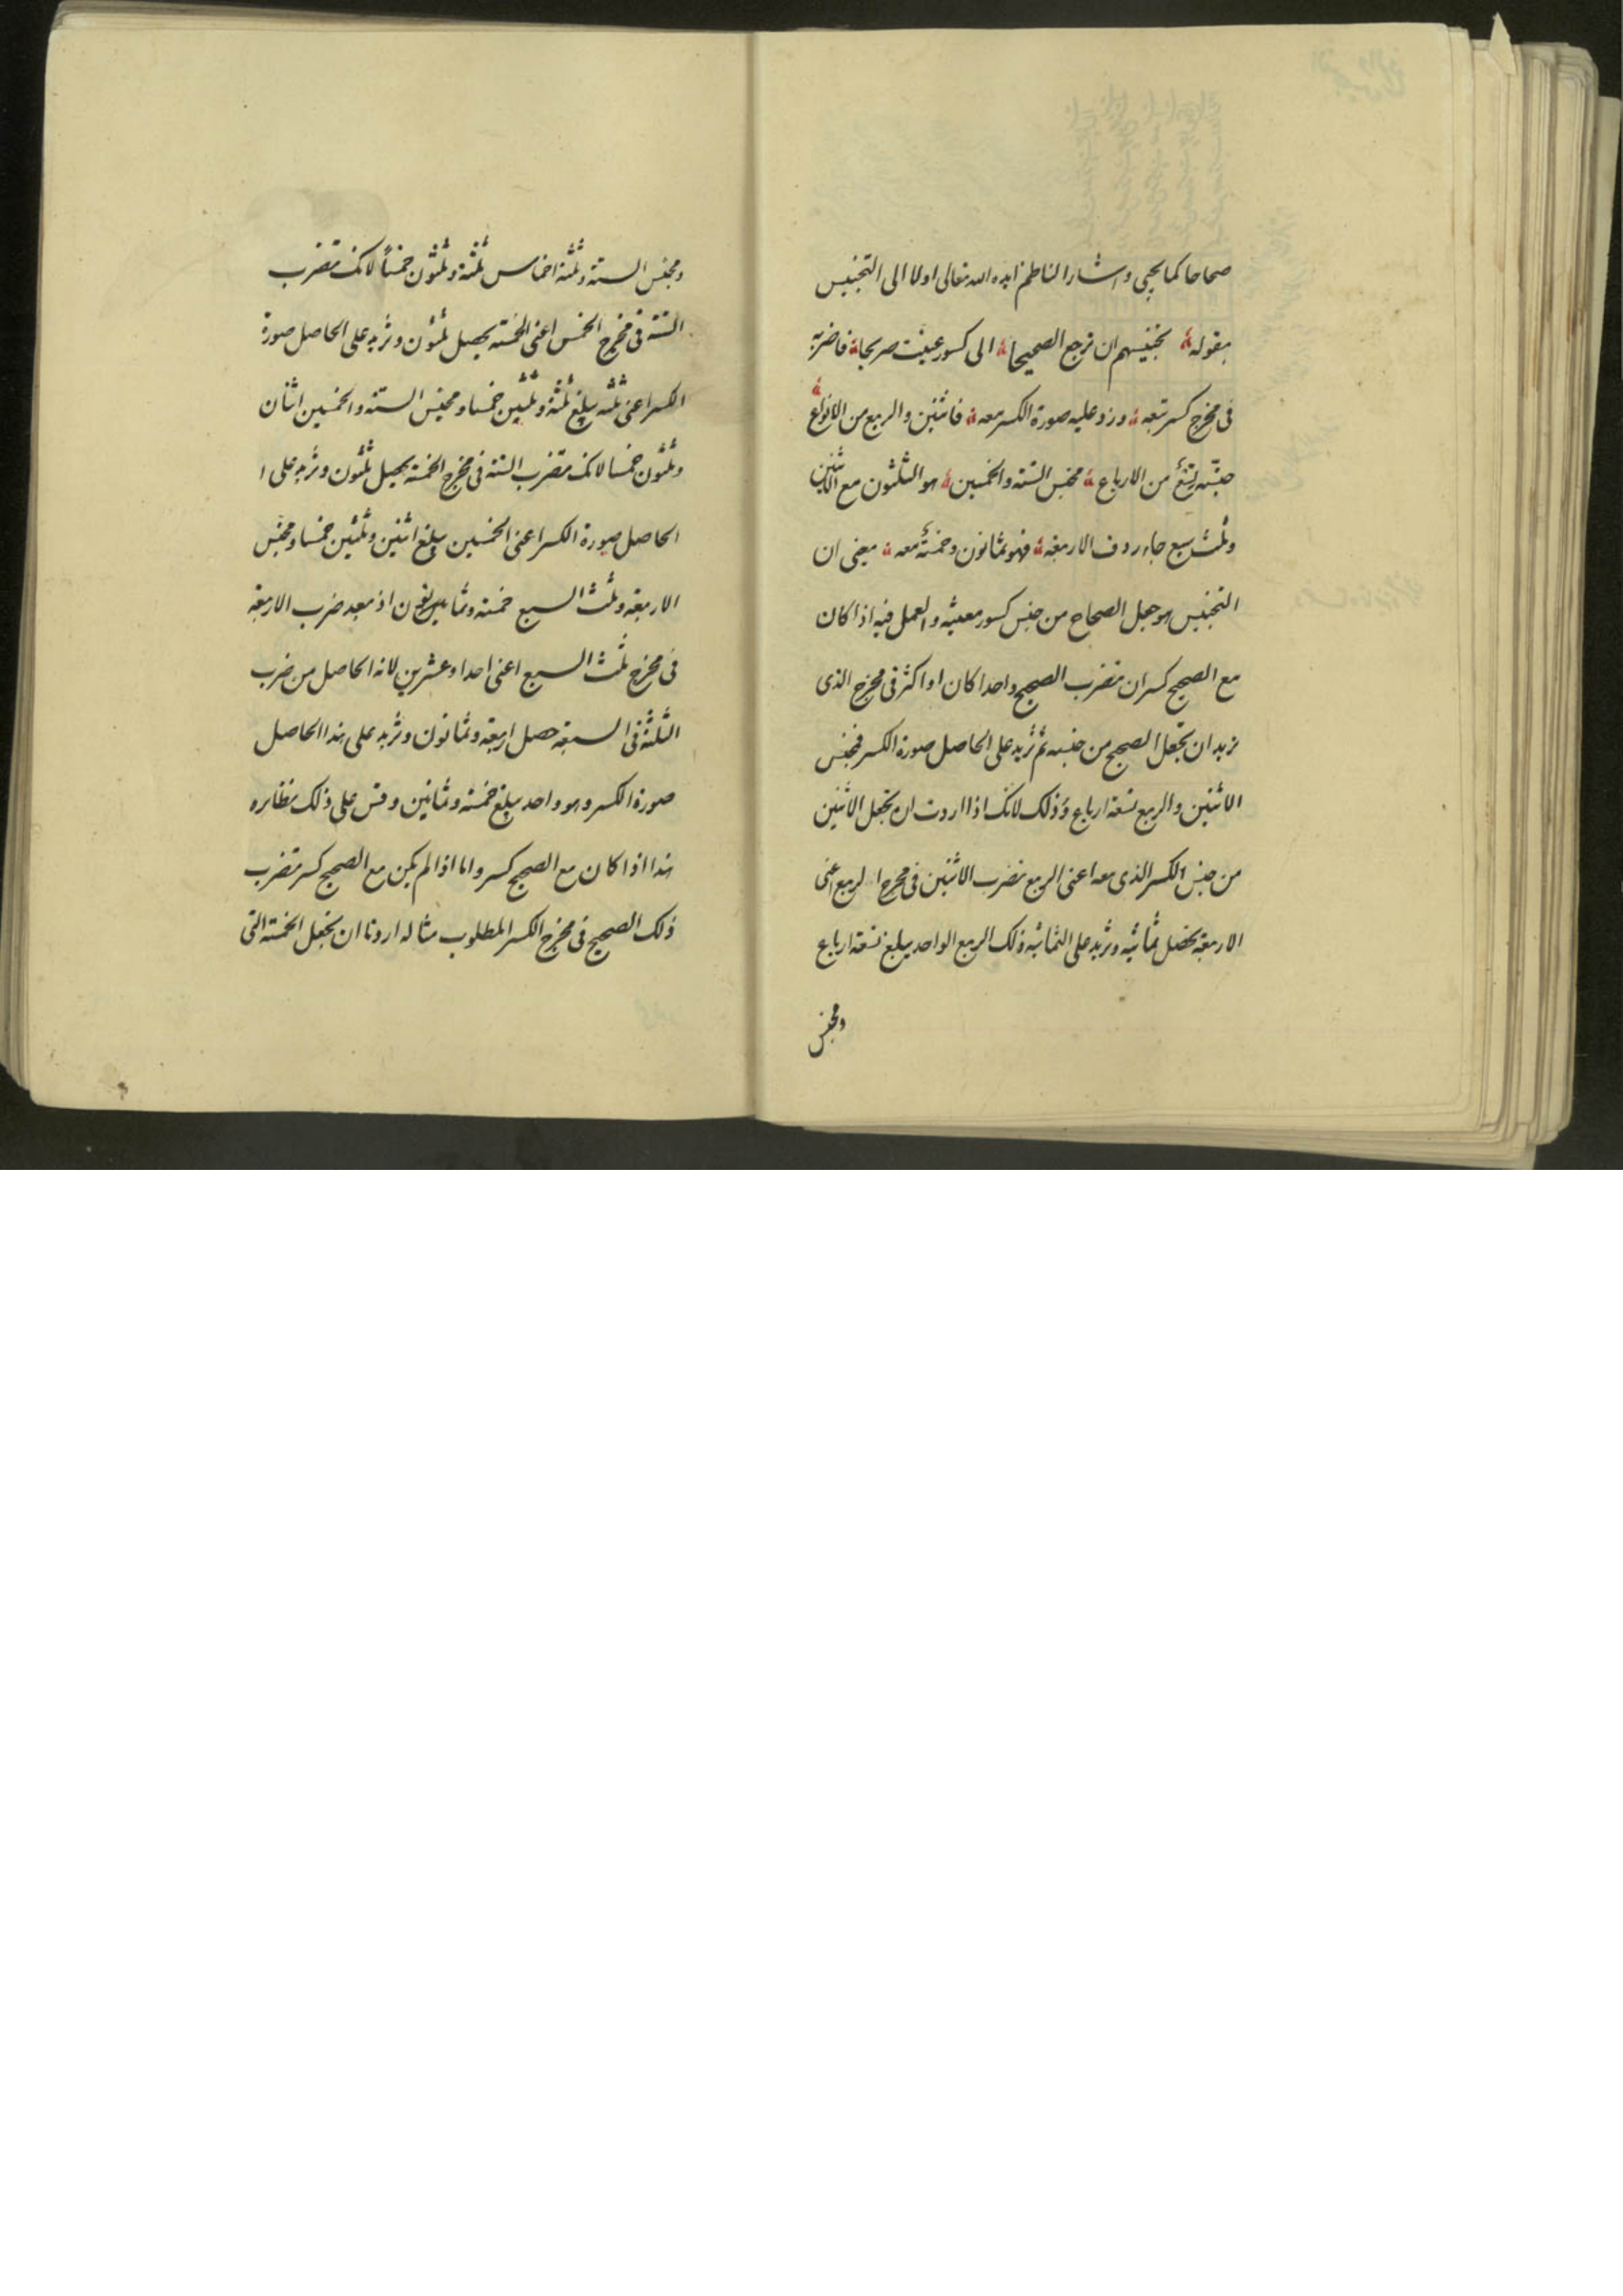 صحاحا كما يجيى واشار الناظم ايده الله تعالى اولا الى التجنيس
بقوله تجنيسهم ان ترجع الصحيحا الى كسور عينت صريحا فاضربه
فى مخرج كسر تبعه وزد عليه صورة الكسر معه فاثنين والربع من الانواع
جنسه تسع من الارباع مجنس الستة والخمسين هو الثلثون مع الاثنين
وثلث سبع جاء ردف الاربعة فهو ثمانون وخمسة معه يعنى ان
التجنيس هو جعل الصحاح من جنس كسور معينه والعمل فيه اذا كان
مع الصحيح كسر ان تضرب الصحيح واحدا كان او اكثر فى مخرج الذى
نريد ان تجعل الصحيح من جنسه ثم تزيد على الحاصل صورة الكسر فمجنس
الاثنين والربع تسعة ارباع وذلك لانك اذا اردت ان تجعل الاثنين
من جنس الكسر الذى معه اعنى الربع تضرب الاثنين فى مخرج الربع اعنى
الاربعة تحصل ثمانية وتزيد على الثمانيه ذلك الربع الواحد يبلغ تسعة ارباع
ومجنس
ومجنس الستة وثلثة اخماس ثلثة وثلثون خمساً لانك تضرب
الستة فى مخرج الخمس اعنى الخمسة يحصل ثلثون وتزيد على الحاصل صورة
الكسر اعنى ثلثه يبلغ ثلثة وثلثين خمسا ومجنس الستة والخمسين اثنان
وثلثون خمسا لانك تضرب الستة فى مخرج الخمسة يحصل ثلثون وتزيد على ا
الحاصل صورة الكسر اعنى الخمسين يبلغ اثنين وثلثين خمسا ومجنس
الاربعة وثلث السبع خمسة وثمانون اذ بعد ضرب الاربعة
فى مخرج ثلث السبع اعنى احدا وعشرين لانه الحاصل من ضرب
الثلثة فى السبعة حصل اربعة وثمانون وتزيد على هذا الحاصل
صورة الكسر وهو واحد يبلغ خمسة وثمانين وقس على ذلك نظائره
هذا اذا كان مع الصحيح كسر واما اذا لم يكن مع الصحيح كسر تضرب
ذلك الصحيح فى مخرج الكسر المطلوب مثاله اردنا ان نجعل الخمسة التى